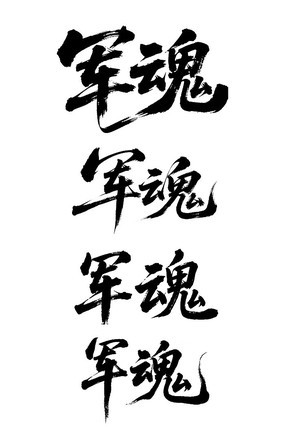 军魂
军魂
军魂
军魂